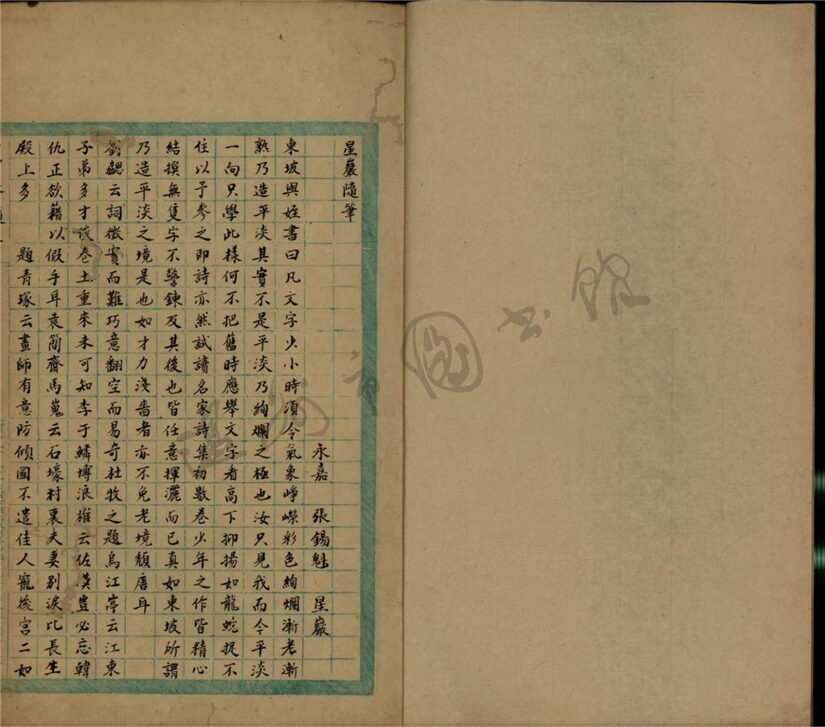 星巖隨筆
永嘉 張錫魁 星巖
東坡與姪書曰凡文字少小時須令氣象崢嶸彩色絢爛漸老漸
熟乃造平淡其實不是平淡乃絢爛之極也汝只見我而今平淡
一向只學此樣何不把舊時應舉文字看高下抑揚如龍蛇捉不
住以予參之即詩亦然試讀名家詩集初數卷少年之作皆精心
結撰無隻字不警鍊及其後也皆任意揮灑而已真如東坡所謂
乃造平淡之境是也如才力淺嗇者亦不免老境頹唐耳
劉勰云詞徵實而難巧意翻空而易奇杜牧之題烏江亭云江東
子弟多才俊卷土重來未可知李于鱗博浪椎云佐漢豈必忘韓
仇正欲藉以假手耳袁蘭齋馬嵬云石壕村裏夫妻別淚比長生
殿上多 題青塚云畫師有意防傾國不遣佳人寵後宮二如